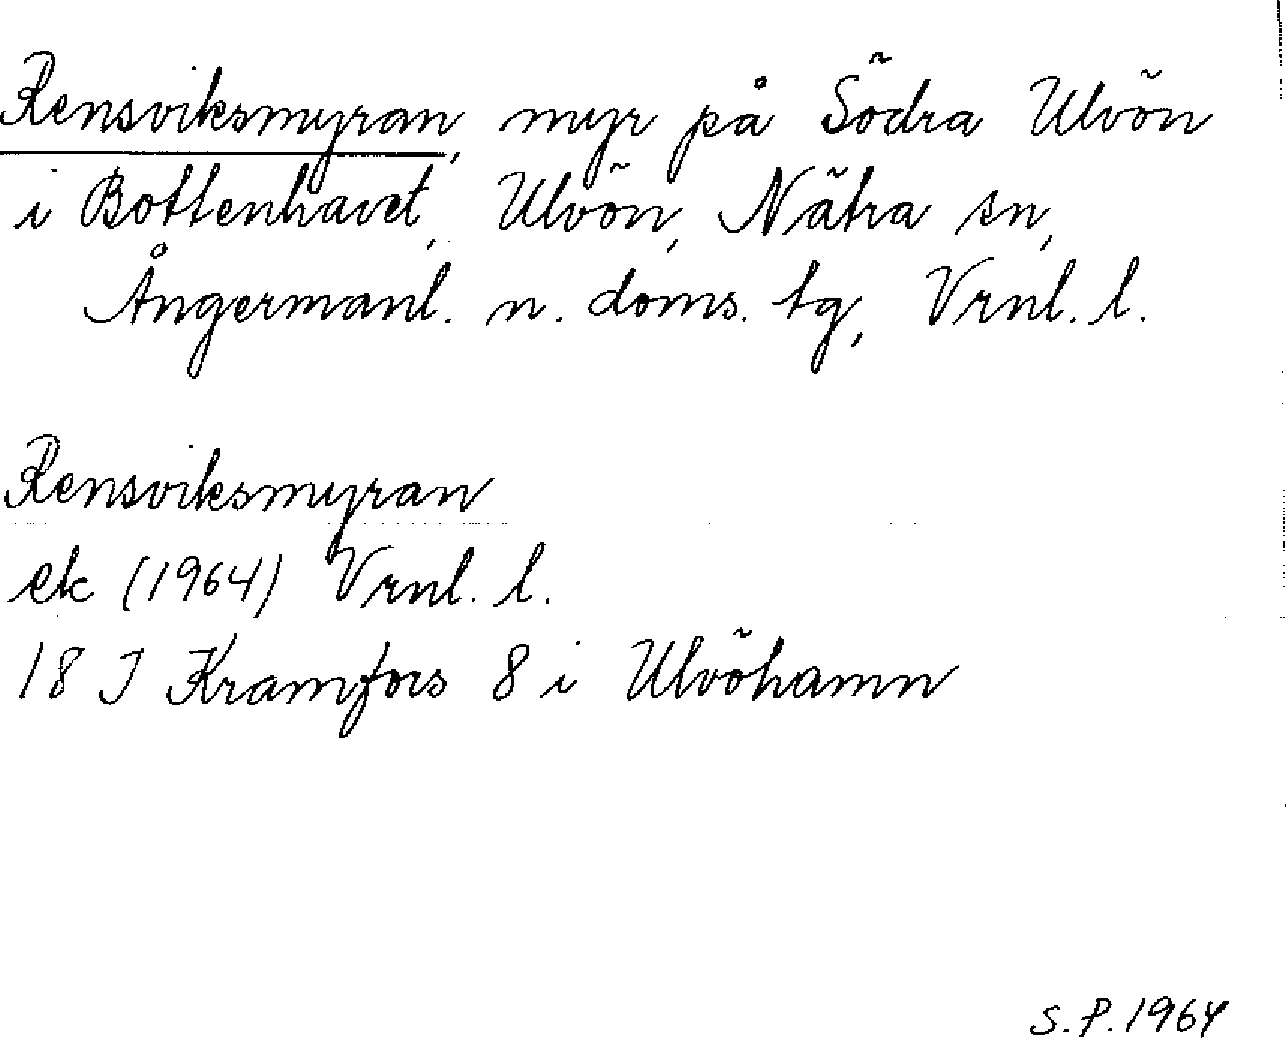 Rensviksmyran, myr på Södra Ulvön
i Bottenhavet, Ulvön, Nätra sn,
Ångermanl. n. doms. tg, Vrnl. l.
Rensviksmyran
ek (1964) Vrnl. l.
18 J Kramfors 8 i Ulvöhamn
S.P. 1964